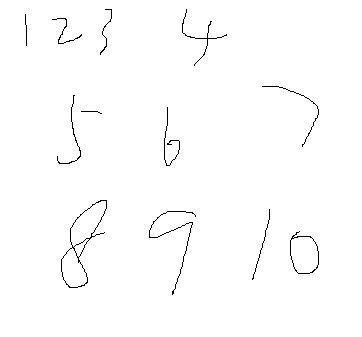 1 2 3 4
5 6 7
8 9 10